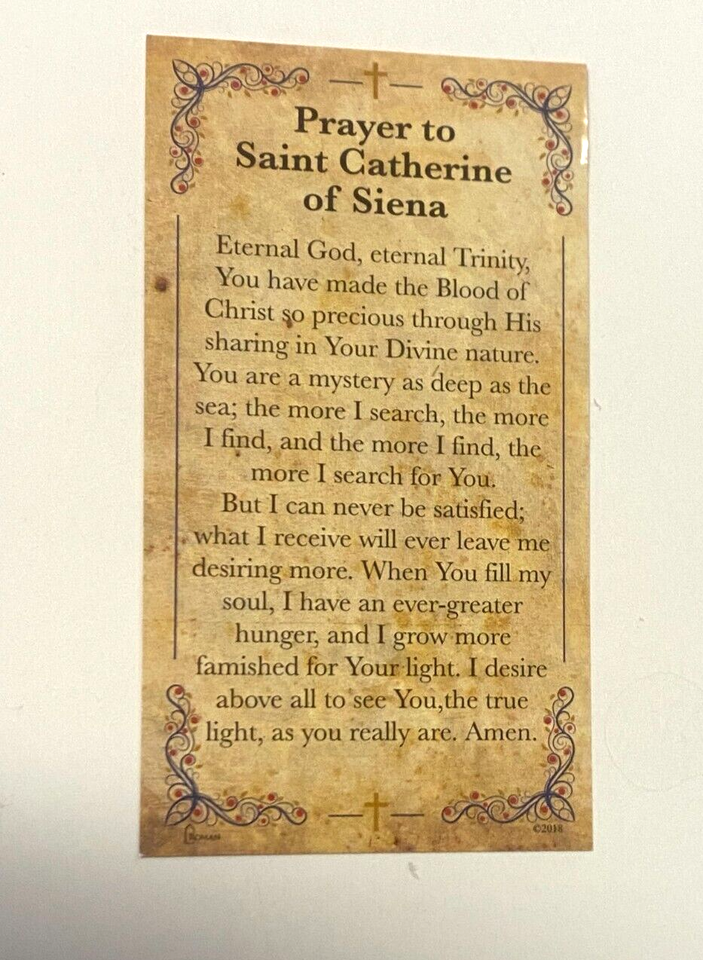 Prayer to
Saint Catherine
of Siena
Eternal God, eternal Trinity,
You have made the Blood of
Christ so precious through His
sharing in Your Divine nature.
You are a mystery as deep as the
sea; the more I search, the more
I find, and the more I find, the
more I search for You.
But I can never be satisfied;
what I receive will ever leave me
desiring more. When You fill my
soul, I have an ever-greater
hunger, and I grow more
famished for Your light. I desire
above all to see You,the true
light, as you really are. Amen.
ROMAN
©2018